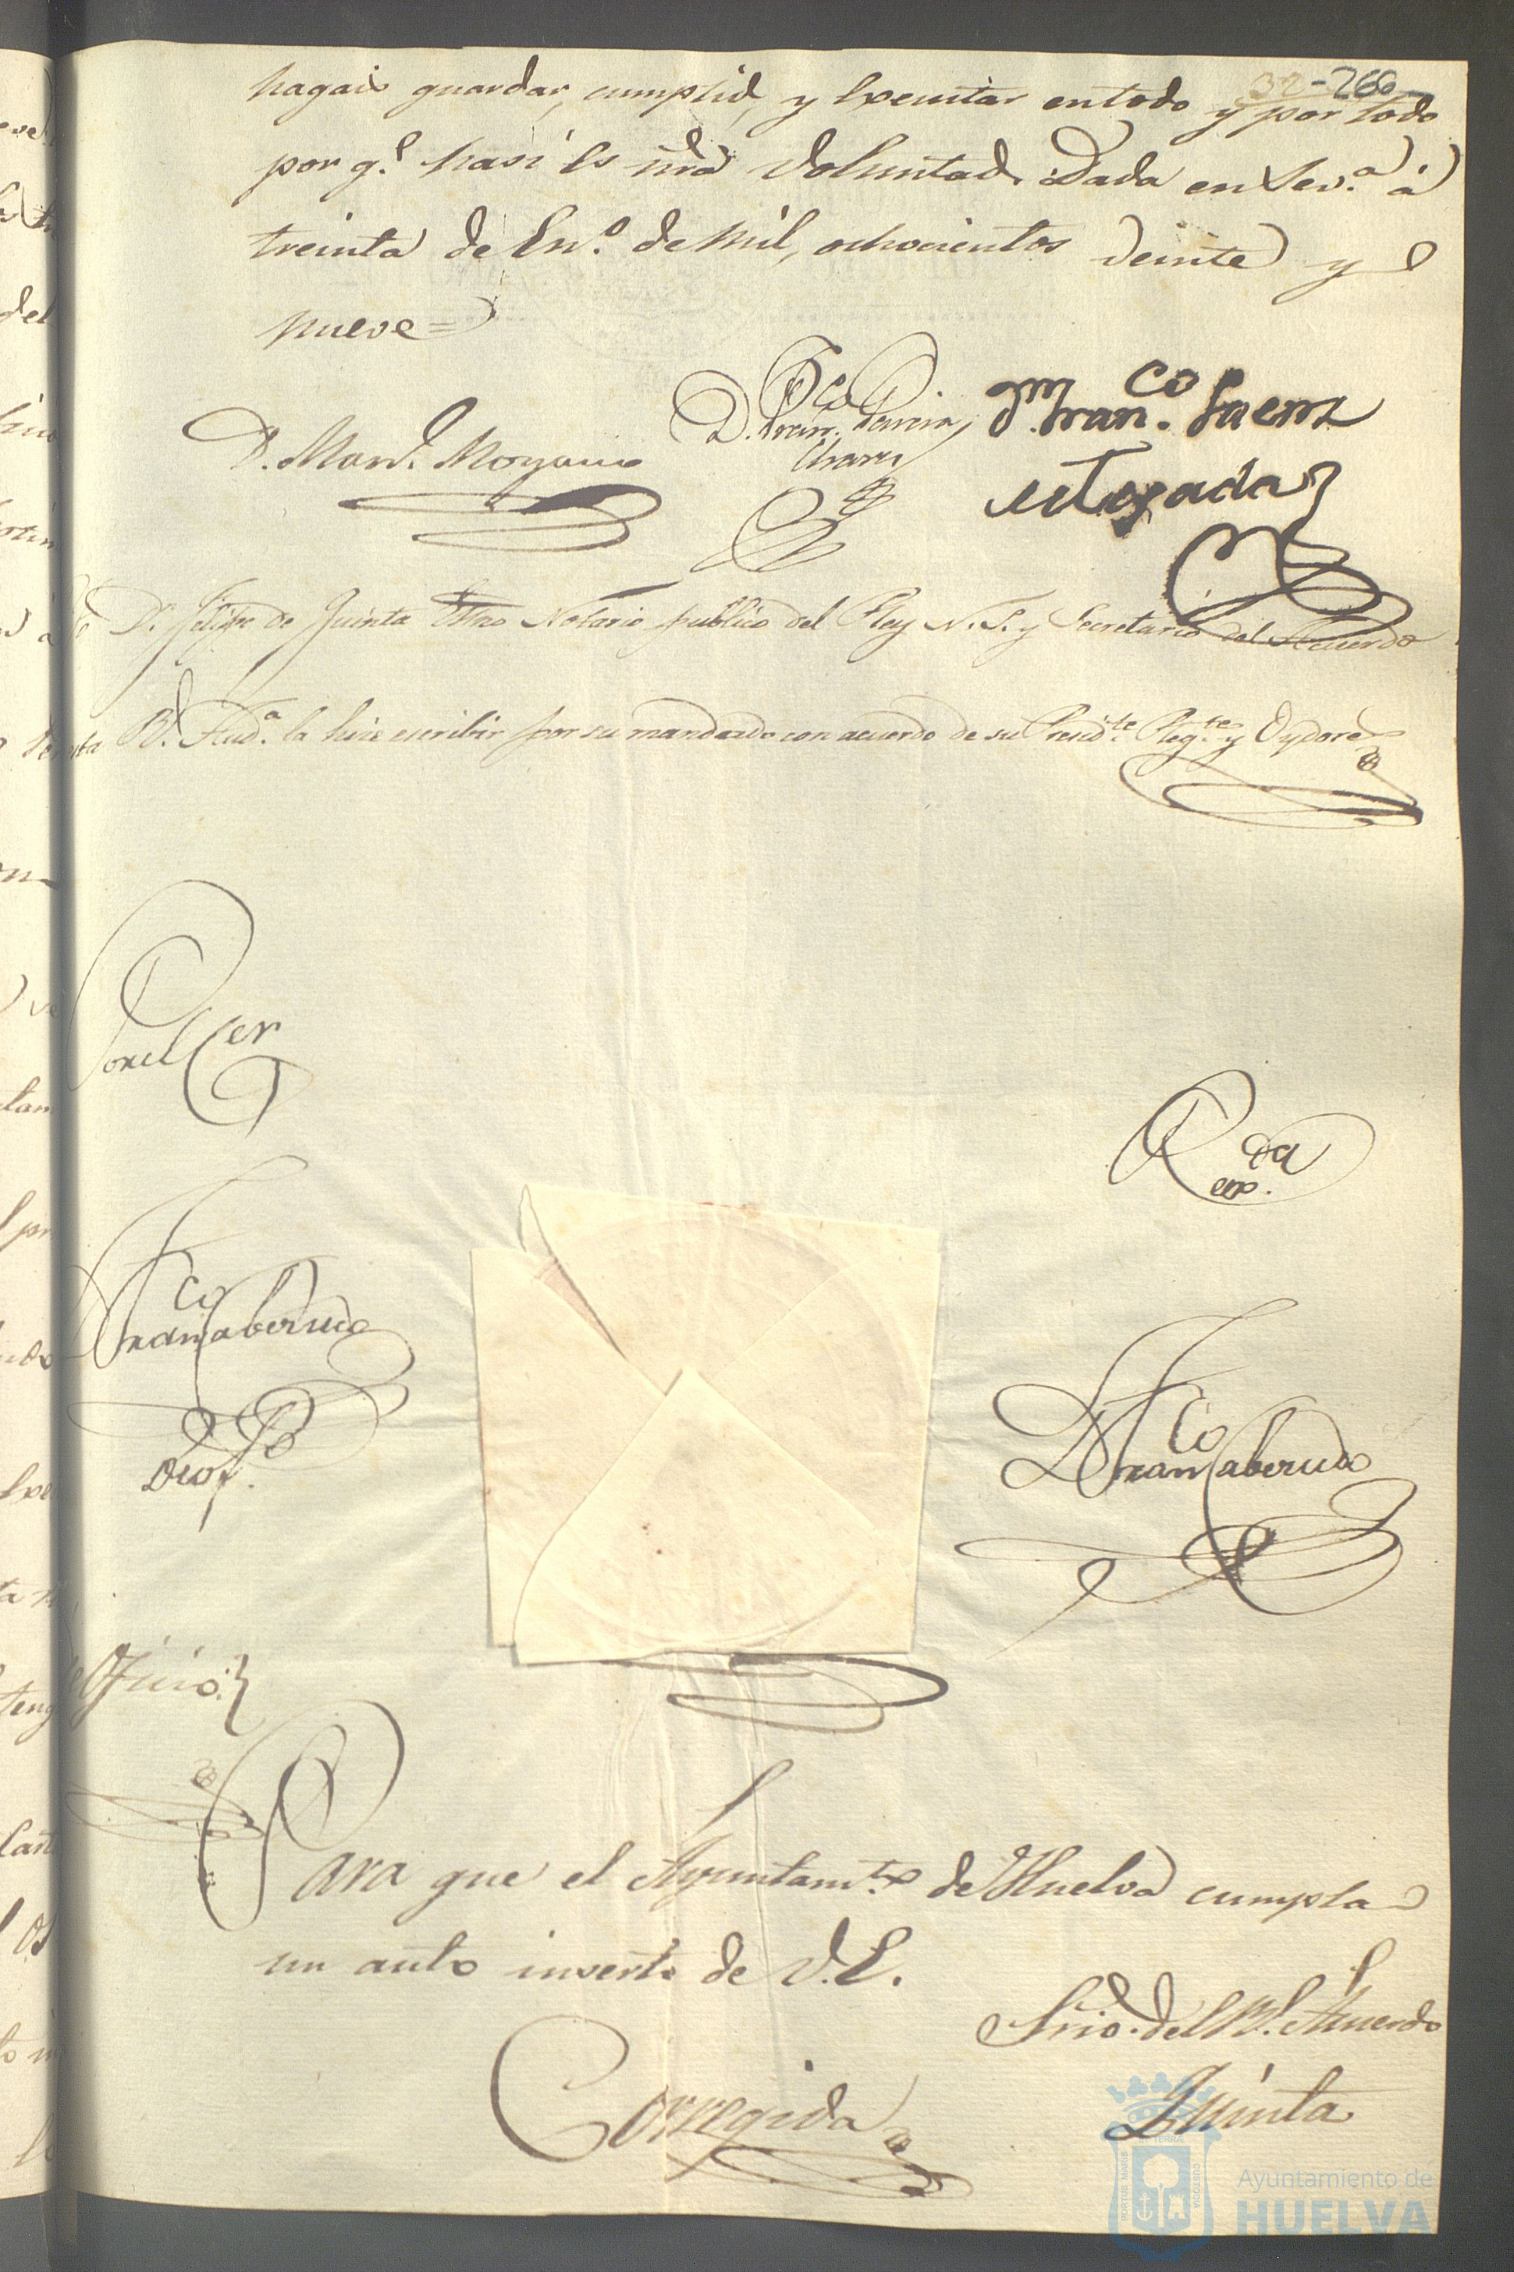 32-260
hagais guardar, cumplid, y Executar en todo y por todo
por q.e hasi es nra Voluntad. Dada en Sev.a á
treinta de En.o de mil, ochocientos veinte y
nueve=
D. Man.l Moyano
D. Fran.co Garcia
Chaves
Dn. Fran.co Saenz
de Texada
Yo D.n Felipe de Quinta Ssno Notario publico del Rey N. S. y Secretario del Acuerdo
R.l Aud.a la hize escribir por su mandado con acuerdo de su Presid.te Reg.te y Oydores
Por el Cer
R.da
Fran.co Caberudo
Dros
D. Fran.co Caberudo
de Oficio:
Para que el Ayuntam.to de Huelva cumpla
un auto inserto de V. E.
Srio. del R.l Acuerdo
Quinta
Corregida
PORTUS MARIS
CUSTODIA
Ayuntamiento de
HUELVA